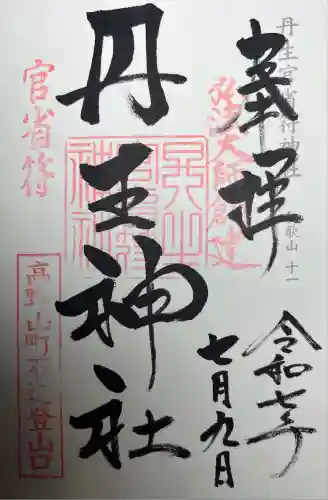 奉拝
丹生官省符神社
弘法大師創建
丹生神社
官省符
高野山町石道登山口
令和七年
七月九日